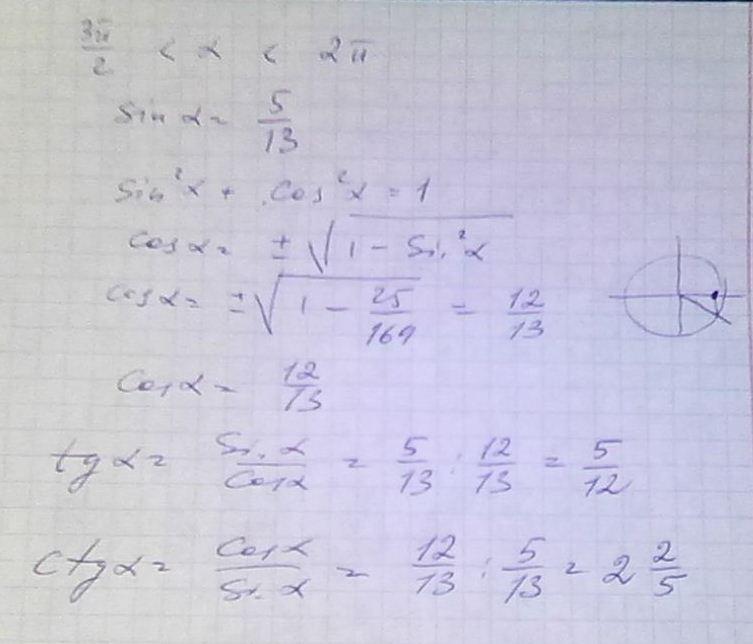 3π/2 < α < 2π
sin α = 5/13
sin²α + cos²α = 1
cos α = ± √(1 - sin²α)
cos α = ± √(1 - 25/169) = 12/13
cos α = 12/13
tg α = sin α / cos α = 5/13 : 12/13 = 5/12
ctg α = cos α / sin α = 12/13 : 5/13 = 2 2/5